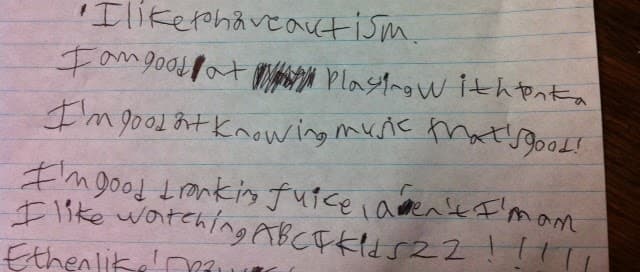 I like to have autism.
I am good at Playing with tonka
I'm good at Knowing music that's good!
I'm good dranking juice, aren't I'm am
I like watching ABC4kids22!!!!!
Ethen like